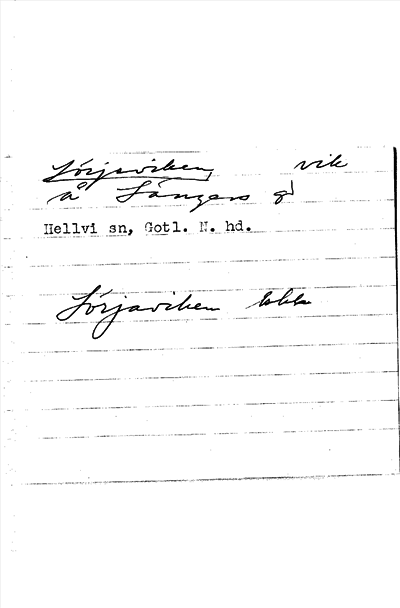 Lörjaviken, vik
å Sängers gd
Hellvi sn, Gotl. N. hd.
Lörjaviken